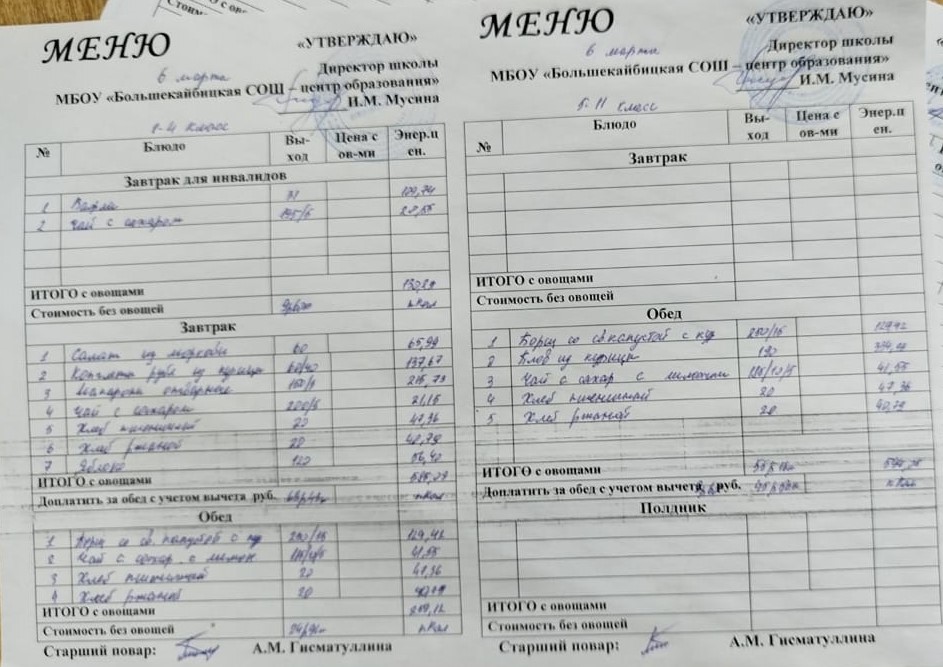 МЕНЮ
«УТВЕРЖДАЮ»
6 марта
Директор школы
МБОУ «Большекайбицкая СОШ – центр образования»
И.М. Мусина
1-4 класс
№ Блюдо Вы-ход Цена с ов-ми Энер.ц ен.
Завтрак для инвалидов
1 Вафли
2 Чай с сахаром 195/5
ИТОГО с овощами
Стоимость без овощей
Завтрак
1 Салат из моркови 60 65,99
2 из курицы 137,67
3 Макароны отварные
4 Чай с сахаром 200/5
5 Хлеб пшеничный 20 47,36
6 Хлеб ржаной 20 40,79
7 Яблоко 120 56,40
ИТОГО с овощами
Доплатить за обед с учетом вычета руб. пКал
Обед
1 Борщ со св. капустой с кур 250/15 129,42
2 Чай с сахар. с лимон 41,55
3 Хлеб пшеничный 20 47,36
4 Хлеб ржаной 20 40,79
ИТОГО с овощами 259,12
Стоимость без овощей
Старший повар: А.М. Гисматуллина
МЕНЮ
«УТВЕРЖДАЮ»
6 марта
Директор школы
МБОУ «Большекайбицкая СОШ – центр образования»
И.М. Мусина
5-11 класс
№ Блюдо Вы-ход Цена с ов-ми Энер.ц ен.
Завтрак
ИТОГО с овощами
Стоимость без овощей
Обед
1 Борщ со св капустой с кур 250/15 129,42
2 Плов из курицы 190
3 Чай с сахар с лимоном 41,55
4 Хлеб пшеничный 20 47,36
5 Хлеб ржаной 20 40,79
ИТОГО с овощами
Доплатить за обед с учетом вычета руб.
Полдник
ИТОГО с овощами
Стоимость без овощей
Старший повар: А.М. Гисматуллина